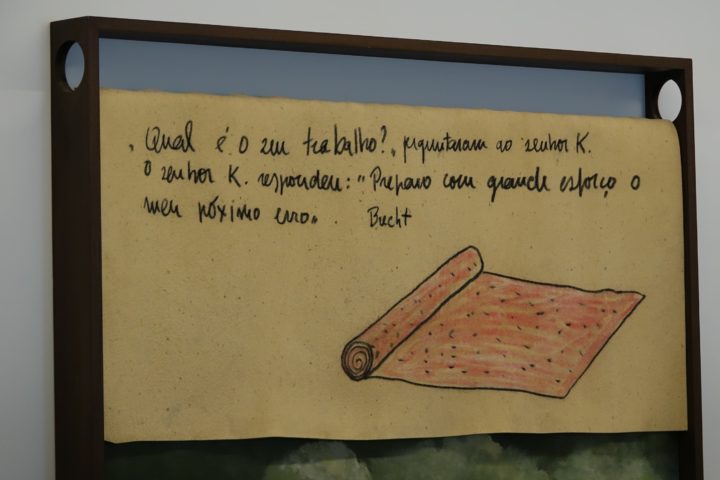 „Qual é o seu trabalho?", perguntaram ao senhor K.
O senhor K. respondeu: "Preparo com grande esforço o
meu próximo erro".     Brecht